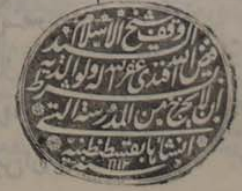 وقف شيخ الاسلام السيد
فيض الله افندى غفر الله له ولوالديه بشرط
ان لا يخرج من المدرسة التى
انشاها بقسطنطينية
سنة